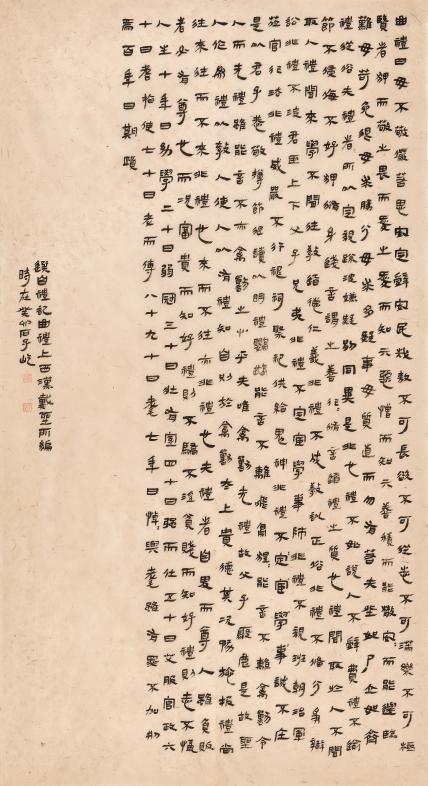 曲禮曰毋不敬儼若思安定辭安民哉敖不可長欲不可從志不可滿樂不可極
賢者狎而敬之畏而愛之愛而知其惡憎而知其善積而能散安安而能遷臨
難毋苟免很毋求勝分毋求多疑事毋質直而勿有若夫坐如尸立如齊
禮從俗夫禮者所以定親疏決嫌疑別同異是非也禮不妄說人不辭費禮不踰
節不侵侮不好狎修身踐言謂之善行行修言道禮之質也禮聞取於人不聞
取人禮聞來學不聞往教道德仁義非禮不成教訓正俗非禮不備分爭辯
訟非禮不決君臣上下父子兄弟非禮不定宦學事師非禮不親班朝治軍
蒞官行法非禮威嚴不行禱祠祭祀供給鬼神非禮不定宦學事誠不莊
是以君子恭敬撙節退讓以明禮鸚鵡能言不離飛鳥猩猩能言不離禽獸今
人而無禮雖能言不亦禽獸之心乎夫唯禽獸無禮故父子聚麀是故聖
人作為禮以教人使人以有禮知自別於禽獸太上貴德其次務施報禮尚
往來往而不來非禮也來而不往亦非禮也夫禮者自卑而尊人雖負販
者必有尊也而況富貴而知好禮則不驕不淫貧賤而知好禮則志不懾
人生十年曰幼學二十曰弱冠三十曰壯有室四十曰強而仕五十曰艾服官政六
十曰耆指使七十曰老而傳八十九十曰耄七年曰悼悼與耄雖有罪不加刑
焉百年曰期頤
錄自禮記曲禮上西漢戴聖所編
時在癸卯石子屹